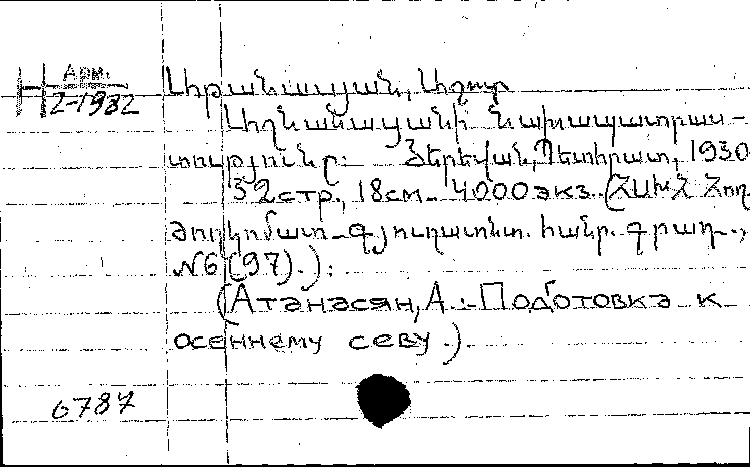 Арм.
2-1932
Աթանասյան, Աշոտ
Աշնանացանի նախապատրաս-
տությունը: Յերեվան, Պետհրատ, 1930
32 стр., 18см. 4000 экз. (ՀՍԽՀ Հող
ժողկոմատ - գյուղատնտ. հանր. գրադ.,
№6 (97).):
(Атанасян, А. - Подготовка к
осеннему севу.)
6787